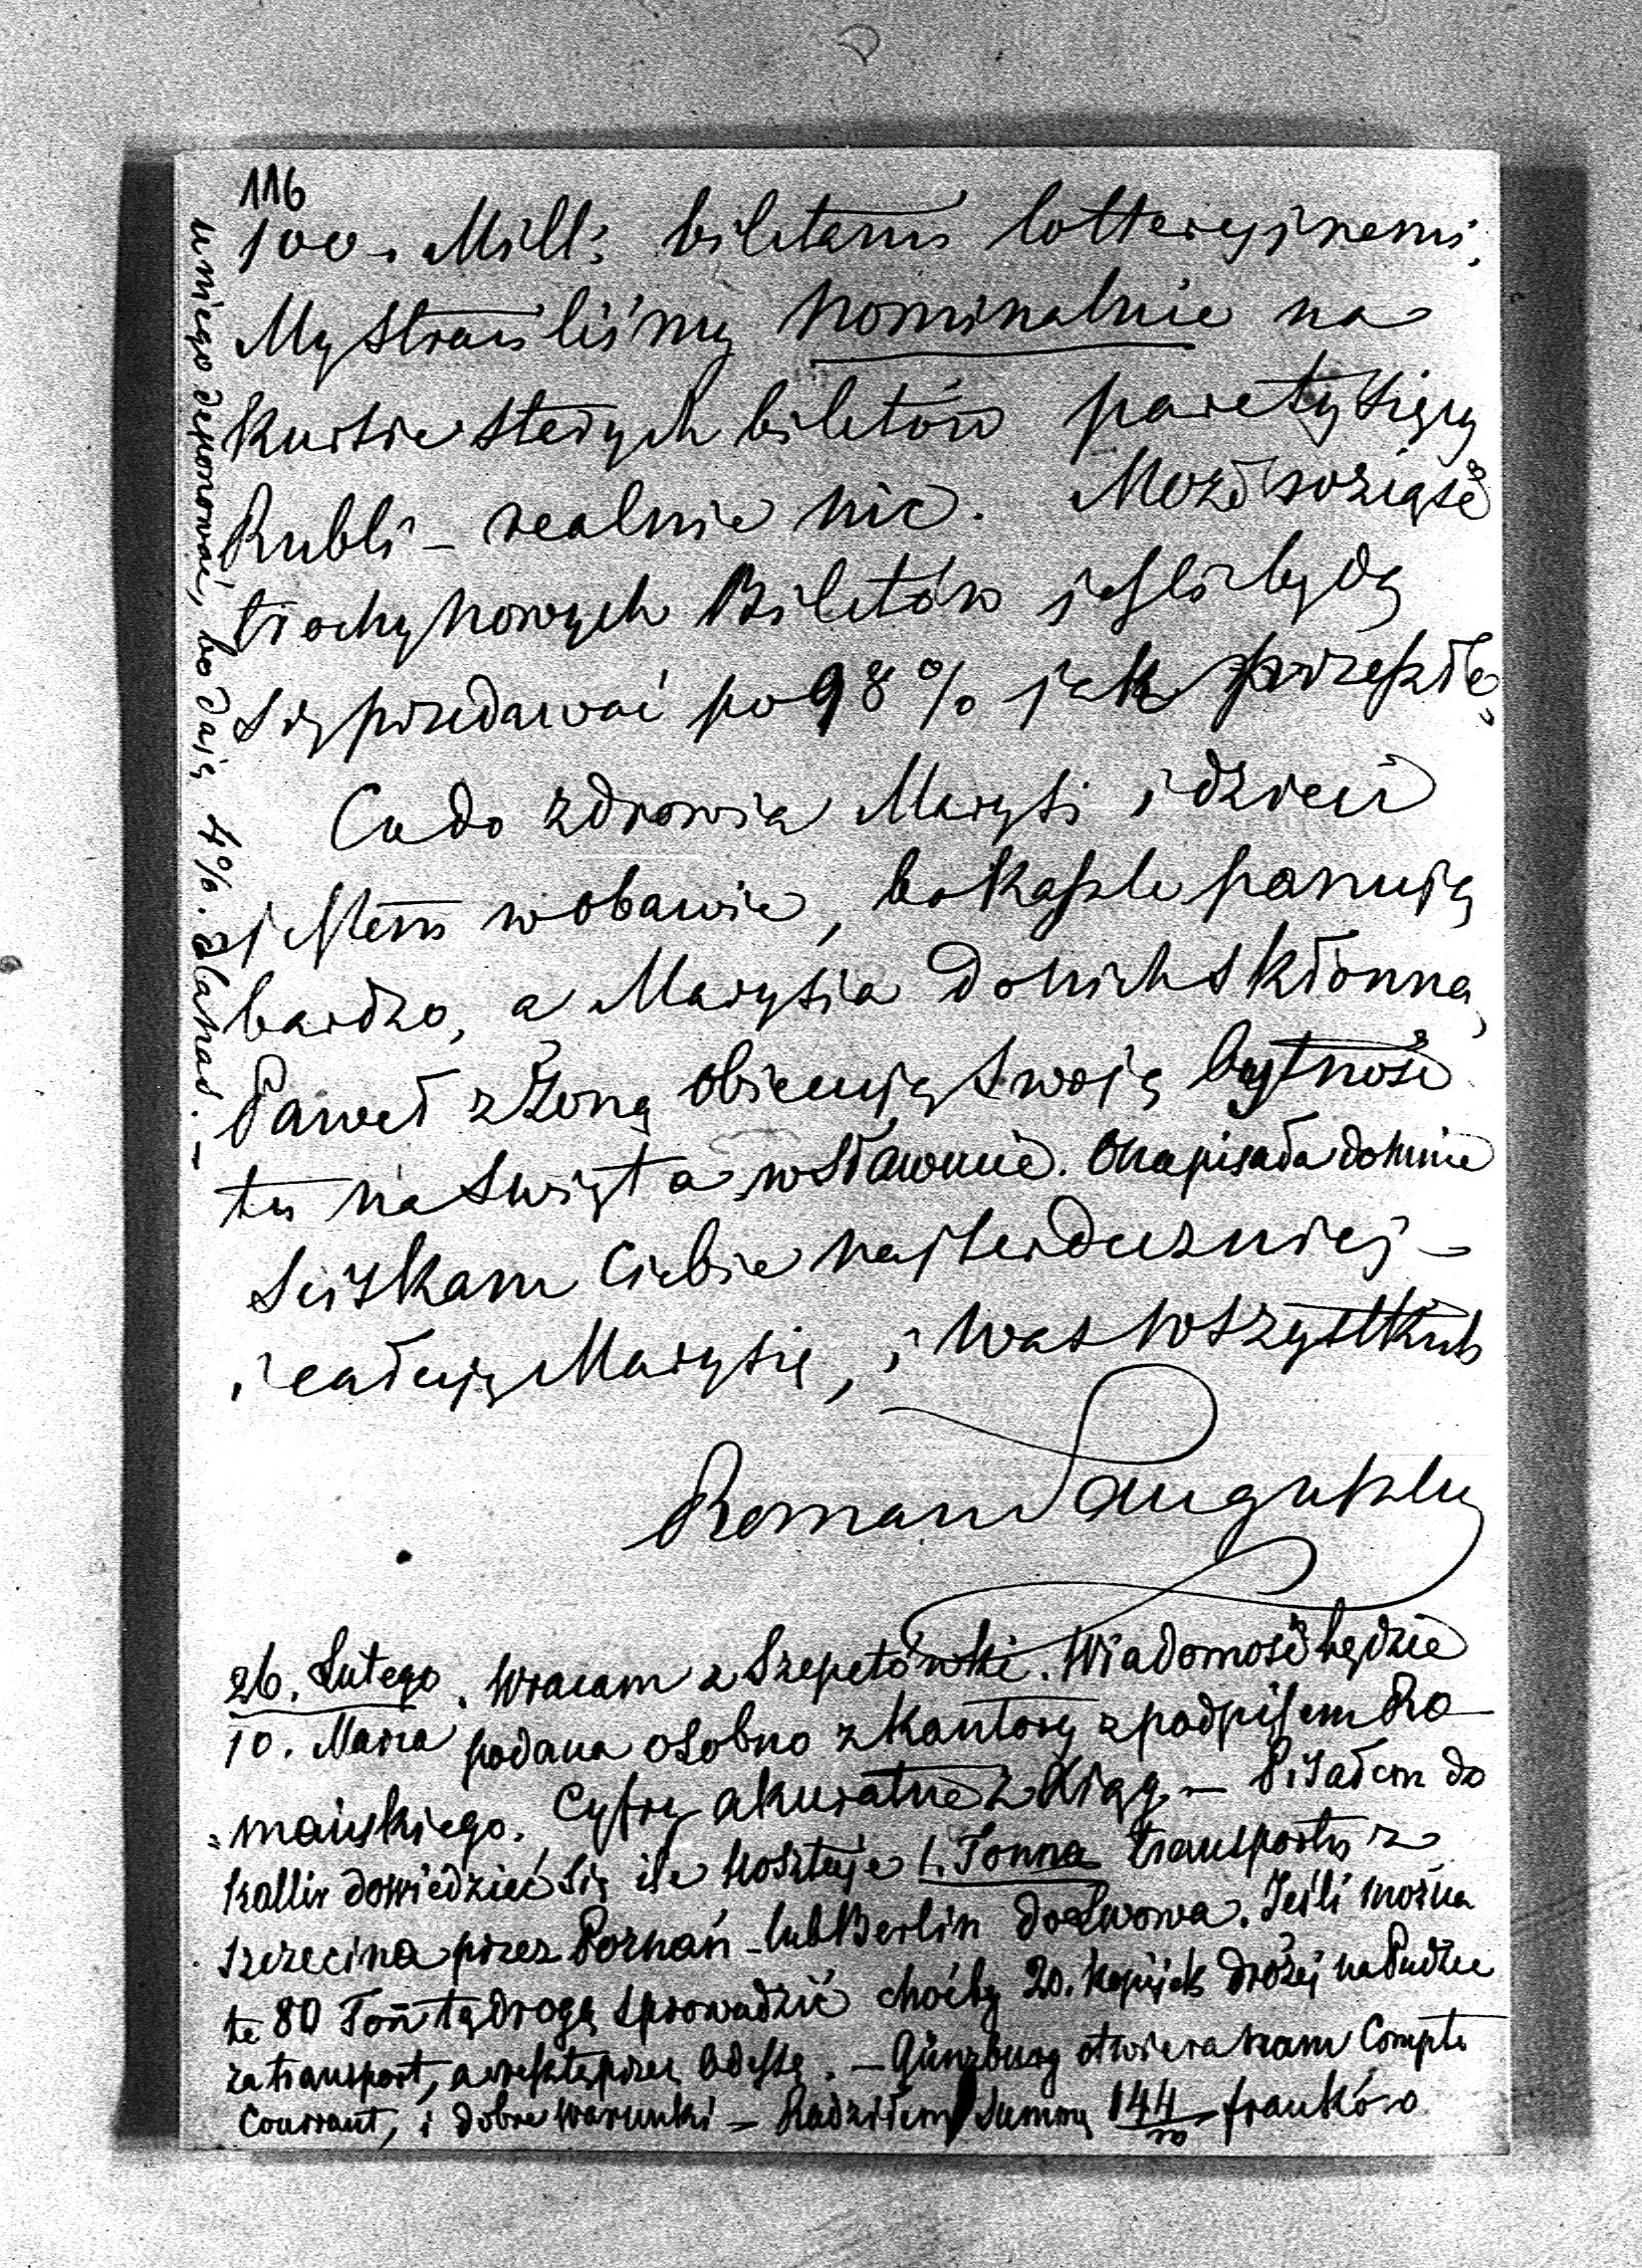 116
100. Mill: biletami lotteryjnemi.
My straciliśmy nominalnie na
kursie starych biletów parę tysięcy
Rubli – realnie nic. Może wziąść
trochę nowych Biletów jeśli będą
się przedawać po 98% jak przeszłe.
Co do zdrowia Marysi i dzieci
jestem w obawie, bo kaszle panują
bardzo, a Marysia do nich skłonna,
Paweł z Żoną obiecują swoją bytność
tu na Święta w Sławucie. Ona pisała do mnie
Sciskam Ciebie najserdeczniej –
i całuję Marysię, i Was wszystkich
Roman Sanguszko
26. Lutego. Wracam z Szepetówki. Wiadomość będzie
10. Marca podana osobno z Kantory z podpisem Ro-
mańskiego. Cyfry akuratne z Xiąg – Pisałem do
Kallir dowiedzieć się ile kosztuje 1. Tonna transportu z
Szczecina przez Poznań – lub Berlin do Lwowa. Jeśli można
te 80 Ton tą drogą sprowadzić choćby 20. kopijek drożej na Pudzie
za transport, a resztę przez Odessę. – Günzburg otwiera nam Compte
Courrant, i dobre warunki – Radziłem Summę 144 franków
u niego deponować, bo dają 4%.